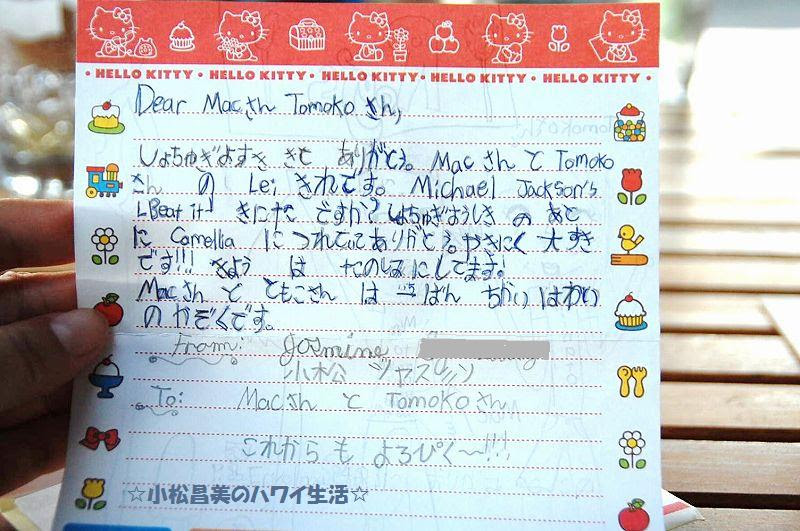 • HELLO KITTY • HELLO KITTY • HELLO KITTY • HELLO KITTY • HELLO KITTY •
Dear Macさん Tomokoさん,
しょちゅぎよすき きて ありがとう。 Macさんと Tomoko
さん の Lei きれです。 Michael Jackson's
"Beat it" きにた ですか? しょちゅぎょうしき の あと
に Camellia に つれてってありがとう。やきにく 大すき
です!!! きょう は たのしみにしてます。
Macさん と ともこさん は 一ばん ちかい はわい
の かぞくです。
From: Jasmine
小松 ジャスミン
To: Macさん と Tomokoさん
これから も よろぴく〜!!!
☆小松昌美のハワイ生活☆